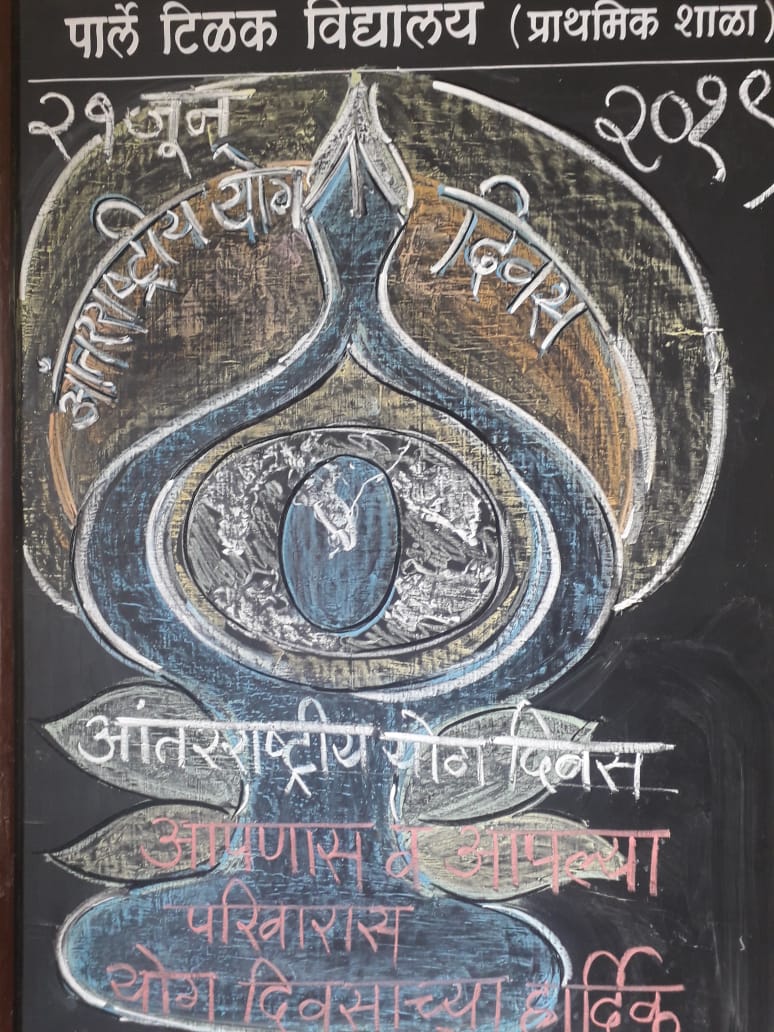 पार्ले टिळक विद्यालय (प्राथमिक शाळा)
२१ जून २०१९
आंतरराष्ट्रीय योग दिवस
आंतरराष्ट्रीय योग दिवस
आपणास व आपल्या
परिवारास
योग दिवसाच्या हार्दिक